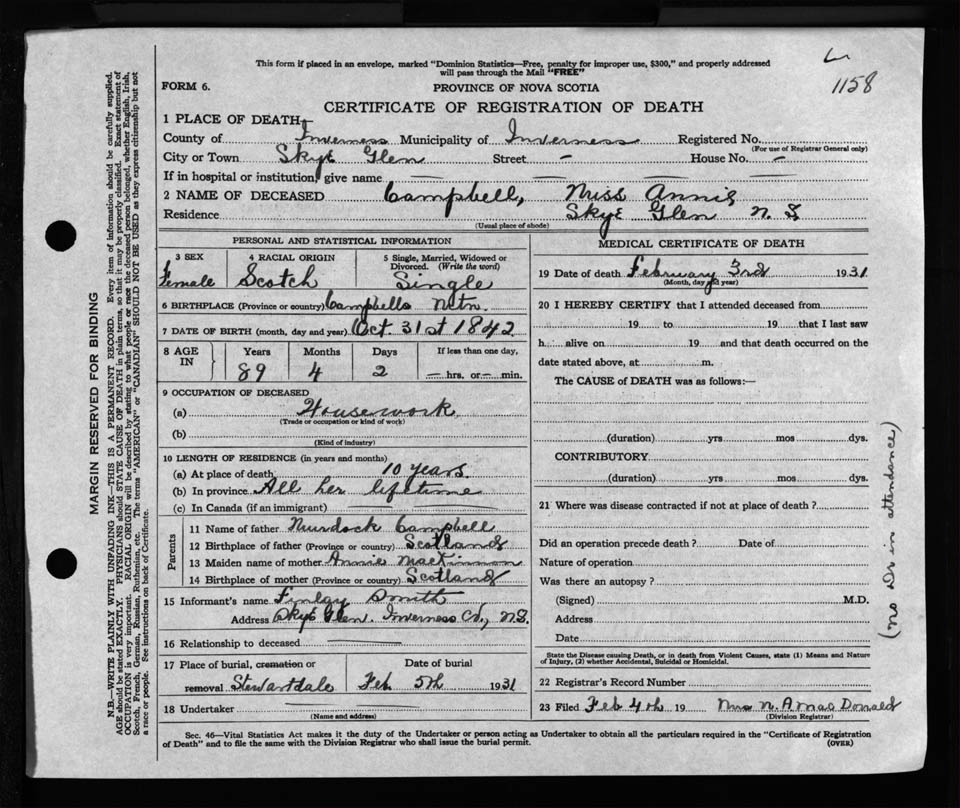 This form if placed in an envelope, marked "Dominion Statistics—Free, penalty for improper use, $300," and properly addressed
will pass through the Mail "FREE"
1158
FORM 6.
PROVINCE OF NOVA SCOTIA
CERTIFICATE OF REGISTRATION OF DEATH
1 PLACE OF DEATH
County of Inverness Municipality of Inverness Registered No.
(For use of Registrar General only)
City or Town Skye Glen Street — House No. —
If in hospital or institution, give name — — —
2 NAME OF DECEASED Campbell, Miss Annie
Residence Skye Glen N. S
(Usual place of abode)
PERSONAL AND STATISTICAL INFORMATION
3 SEX 4 RACIAL ORIGIN 5 Single, Married, Widowed or
Divorced. (Write the word)
Female Scotch Single
6 BIRTHPLACE (Province or country) Campbells Mtn.
7 DATE OF BIRTH (month, day and year) Oct. 31st 1842
8 AGE IN Years Months Days If less than one day,
89 4 2 — hrs. or — min.
9 OCCUPATION OF DECEASED
(a) Housework
(Trade or occupation or kind of work)
(b)
(Kind of industry)
10 LENGTH OF RESIDENCE (in years and months)
(a) At place of death 10 years.
(b) In province All her lifetime
(c) In Canada (if an immigrant) —
Parents
11 Name of father Murdock Campbell
12 Birthplace of father (Province or country) Scotland
13 Maiden name of mother Annie MacKinnon
14 Birthplace of mother (Province or country) Scotland
15 Informant's name Finlay Smith
Address Skye Glen. Inverness Co., N.S.
16 Relationship to deceased
17 Place of burial, cremation or Date of burial
removal Stewartdale Feb 5th 1931
18 Undertaker
(Name and address)
MEDICAL CERTIFICATE OF DEATH
19 Date of death February 3rd 1931
(Month, day and year)
20 I HEREBY CERTIFY that I attended deceased from
19 to 19 that I last saw
h alive on 19 and that death occurred on the
date stated above, at m.
The CAUSE of DEATH was as follows:—
(duration) yrs mos dys.
CONTRIBUTORY
(duration) yrs. mos. dys.
21 Where was disease contracted if not at place of death?
Did an operation precede death? Date of
Nature of operation
Was there an autopsy?
(Signed) M.D.
Address
Date
State the Disease causing Death, or in death from Violent Causes, state (1) Means and Nature
of Injury, (2) whether Accidental, Suicidal or Homicidal.
22 Registrar's Record Number
23 Filed Feb 4th 19 Mrs N. A Mac Donald
(Division Registrar)
(no Dr in attendance)
Sec. 46—Vital Statistics Act makes it the duty of the Undertaker or person acting as Undertaker to obtain all the particulars required in the "Certificate of Registration
of Death" and to file the same with the Division Registrar who shall issue the burial permit.
(OVER)
MARGIN RESERVED FOR BINDING
N.B.—WRITE PLAINLY WITH UNFADING INK—THIS IS A PERMANENT RECORD. Every item of information should be carefully supplied.
AGE should be stated EXACTLY. PHYSICIANS should STATE CAUSE OF DEATH in plain terms, so that it may be properly classified. Exact statement of
OCCUPATION is very important. RACIAL ORIGIN will be described by stating to what people or race the deceased person belonged, whether English, Irish,
Scotch, French, German, Russian, Ruthenian, etc. The terms "AMERICAN" or "CANADIAN" SHOULD NOT BE USED as they express citizenship but not
a race or people. See instructions on back of Certificate.